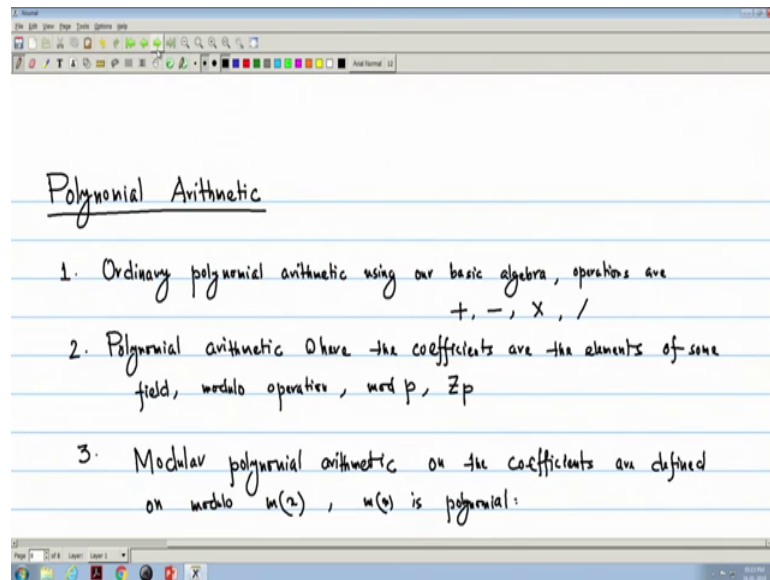 Journal
File Edit View Page Tools Options Help
Arial Normal 12
Polynomial Arithmetic
1. Ordinary polynomial arithmetic using our basic algebra, operations are
+, -, x, /
2. Polynomial arithmetic where the coefficients are the elements of some
field, modulo operation, mod p, Zp
3. Modular polynomial arithmetic on the coefficients are defined
on modulo m(x), m(x) is polynomial.
Page of 8 Layer: Layer 1